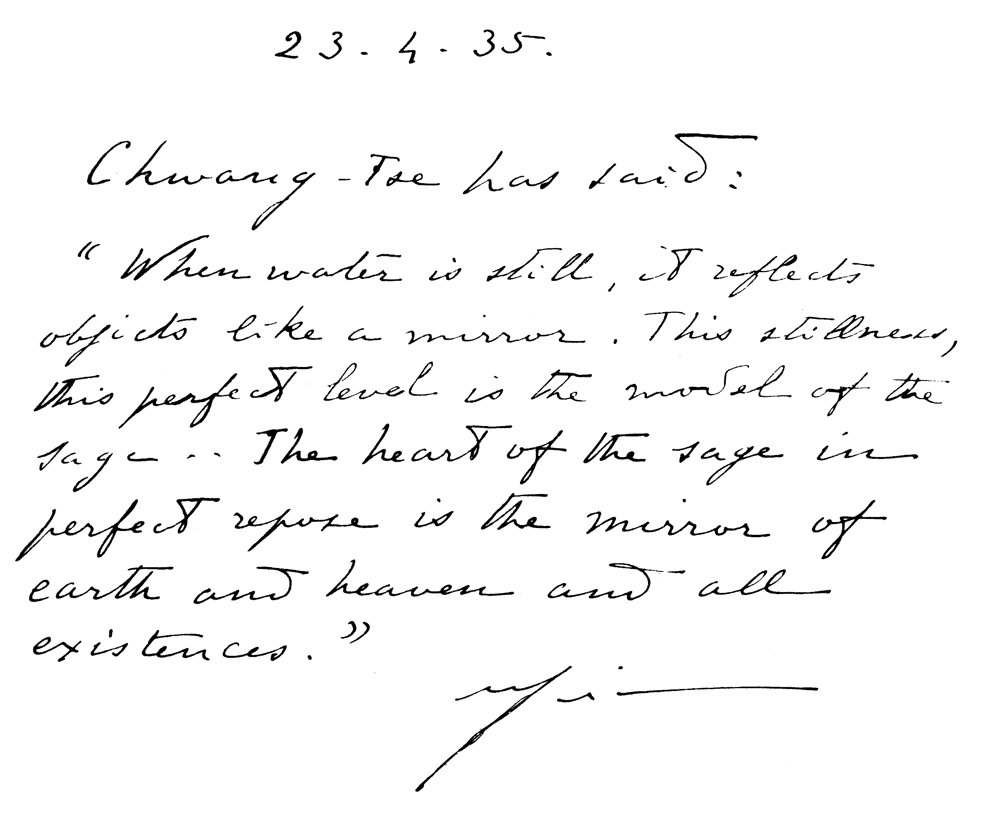 23.4.35.
Chwang-Tse has said:
“When water is still, it reflects
objects like a mirror. This stillness,
this perfect level is the model of the
sage .. The heart of the sage in
perfect repose is the mirror of
earth and heaven and all
existences.”